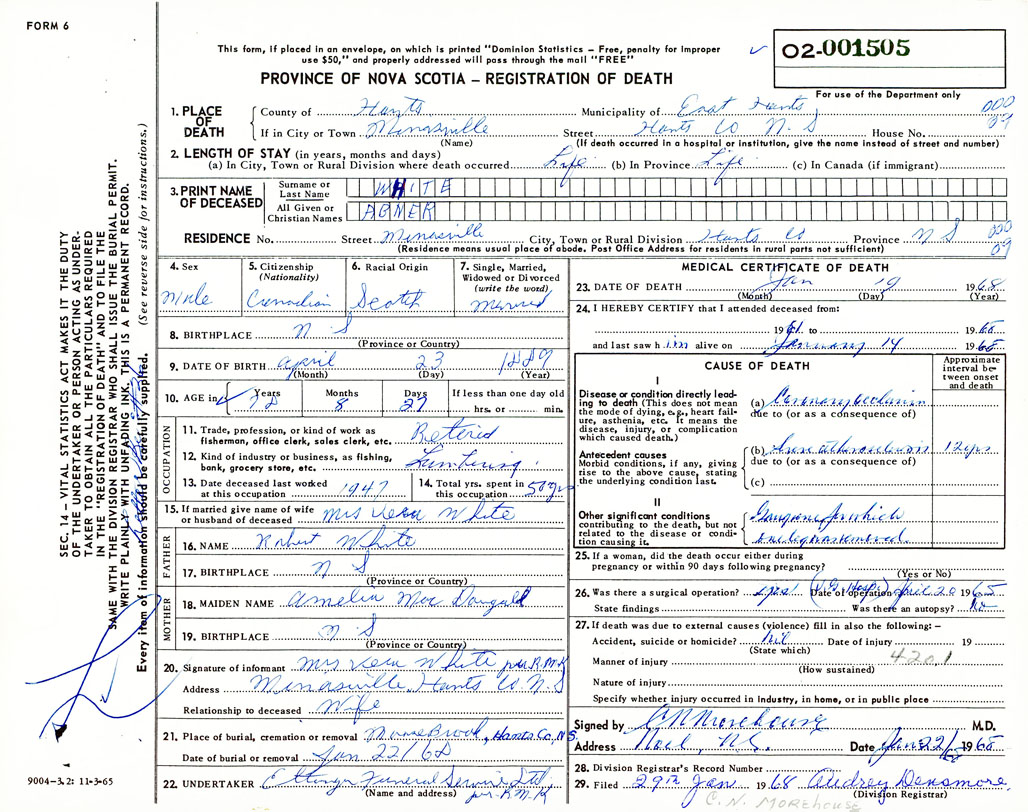 FORM 6
This form, if placed in an envelope, on which is printed "Dominion Statistics – Free, penalty for improper
use $50," and properly addressed will pass through the mail "FREE"
02-001505
PROVINCE OF NOVA SCOTIA – REGISTRATION OF DEATH
For use of the Department only
1. PLACE OF DEATH
County of Hants Municipality of East Hants 000
If in City or Town Minasville Street Hants Co N.S House No. 09
(Name) (If death occurred in a hospital or institution, give the name instead of street and number)
2. LENGTH OF STAY (in years, months and days)
(a) In City, Town or Rural Division where death occurred Life (b) In Province Life (c) In Canada (if immigrant)
3. PRINT NAME OF DECEASED
Surname or Last Name WHITE
All Given or Christian Names ABNER
RESIDENCE No. Street Minasville City, Town or Rural Division Hants Co Province N S 000
09
(Residence means usual place of abode. Post Office Address for residents in rural parts not sufficient)
SEC. 14 – VITAL STATISTICS ACT MAKES IT THE DUTY
OF THE UNDERTAKER OR PERSON ACTING AS UNDER-
TAKER TO OBTAIN ALL THE PARTICULARS REQUIRED
IN THE "REGISTRATION OF DEATH" AND TO FILE THE
SAME WITH THE DIVISION REGISTRAR WHO SHALL ISSUE THE BURIAL PERMIT.
WRITE PLAINLY WITH UNFADING INK. THIS IS A PERMANENT RECORD.
Every item of information should be carefully supplied. (See reverse side for instructions.)
4. Sex Male
5. Citizenship (Nationality) Canadian
6. Racial Origin Scotch
7. Single, Married, Widowed or Divorced (write the word) Married
8. BIRTHPLACE N S
(Province or Country)
9. DATE OF BIRTH April 23 1889
(Month) (Day) (Year)
10. AGE in Years 78 Months 8 Days 27 If less than one day old
hrs. or min.
OCCUPATION
11. Trade, profession, or kind of work as
fisherman, office clerk, sales clerk, etc. Retired
12. Kind of industry or business, as fishing,
bank, grocery store, etc. Lumbering
13. Date deceased last worked
at this occupation 1947
14. Total yrs. spent in
this occupation 50 yrs
15. If married give name of wife
or husband of deceased Mrs Vera White
FATHER
16. NAME Robert White
17. BIRTHPLACE N S
(Province or Country)
MOTHER
18. MAIDEN NAME Amelia MacDougald
19. BIRTHPLACE N S
(Province or Country)
20. Signature of informant Mrs Vera White per R.M.K
Address Minasville, Hants Co N S
Relationship to deceased Wife
21. Place of burial, cremation or removal Moose Brook, Hants Co, N S.
Date of burial or removal Jan 22/68
22. UNDERTAKER Ettinger Funeral Service Ltd.
(Name and address) per R.M.K
9004-3.2: 11-3-65
MEDICAL CERTIFICATE OF DEATH
23. DATE OF DEATH Jan 19 1968
(Month) (Day) (Year)
24. I HEREBY CERTIFY that I attended deceased from:
1961 to 1968
and last saw him alive on January 14 1968
CAUSE OF DEATH
Approximate interval between onset and death
I
Disease or condition directly lead-
ing to death (This does not mean
the mode of dying, e.g., heart fail-
ure, asthenia, etc. It means the
disease, injury, or complication
which caused death.)
(a) Coronary occlusion
due to (or as a consequence of)
Antecedent causes
Morbid conditions, if any, giving
rise to the above cause, stating
the underlying condition last.
(b) 12 yrs
due to (or as a consequence of)
(c)
II
Other significant conditions
contributing to the death, but not
related to the disease or condi-
tion causing it.
Gangrene for which
one leg was removed
25. If a woman, did the death occur either during
pregnancy or within 90 days following pregnancy?
(Yes or No)
26. Was there a surgical operation? yes Date of operation April 20 1965
State findings Was there an autopsy? No
27. If death was due to external causes (violence) fill in also the following: –
Accident, suicide or homicide? Nil Date of injury 19
(State which)
Manner of injury 4201
(How sustained)
Nature of injury
Specify whether injury occurred in industry, in home, or in public place
Signed by C N Morehouse M.D.
Address Noel, N.S. Date Jan 22/68 1968
28. Division Registrar's Record Number
29. Filed 29th Jan 1968 Audrey Densmore
(Division Registrar)
C. N. MOREHOUSE